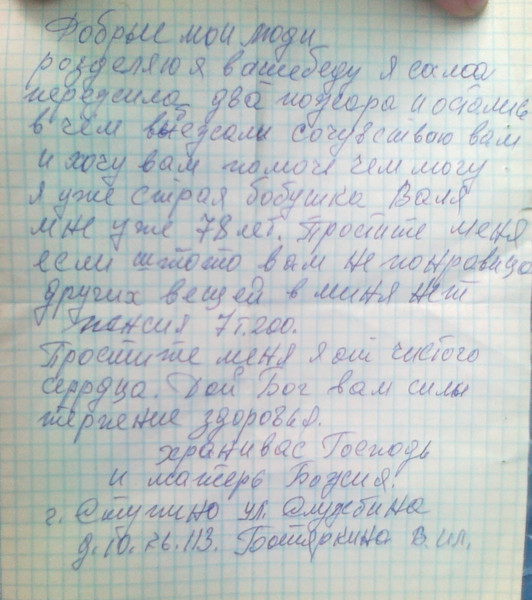 Добрые мои люди
розделяю я вашебеду я сама
пережила два пожара и остались
в чём выбежали сочувствою вам
и хочу вам памоч чем могу.
я уже страя бобушка Валя
мне уже 78 лет. Простите меня
если штото вам не понравица
других вещей в миня нет
пансия 7т.200.
Простите меня я от чистого
серрдца. Дай Бог вам силы
терпение здоровья.
хранивас Господь
и матерь Божия.
г. Ступино ул. Службина
д.10. кв.113. Батяркина В.